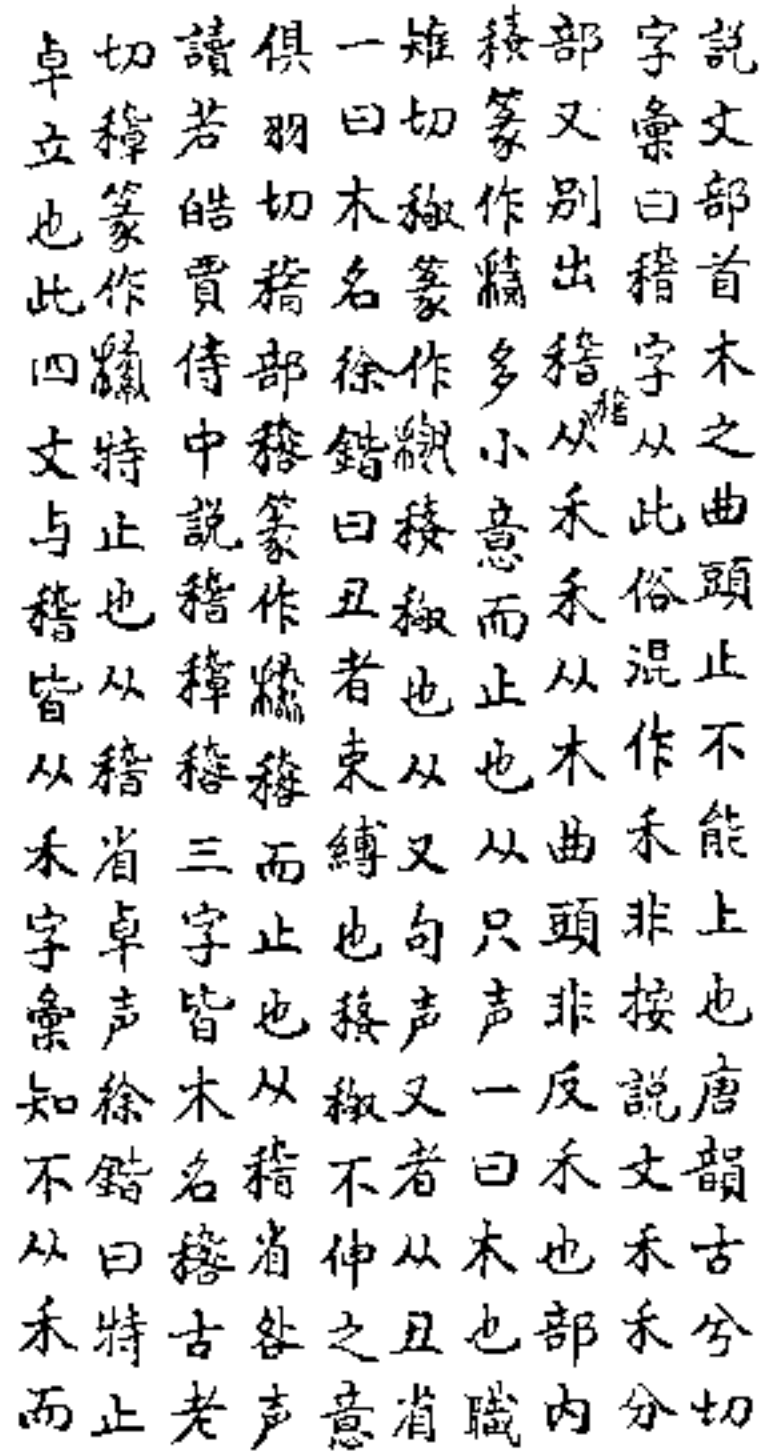 説文部首木之曲頭止不能上也唐韻古兮切
字彙曰稽字从此俗混作禾非按説文禾禾分
部又别出稽稽从禾禾从木曲頭非反禾也部内
篆作多小意而止也从只声一曰木也職
雉切篆作也从又句声又者从丑省
一曰木名徐鍇曰丑者束縛也不伸之意
俱羽切稽部篆作而止也从稽省咎声
讀若皓賈侍中説稽三字皆木名古老
切篆作特止也从稽省卓声徐鍇曰特止
卓立也此四文与稽皆从禾字彙知不从禾而